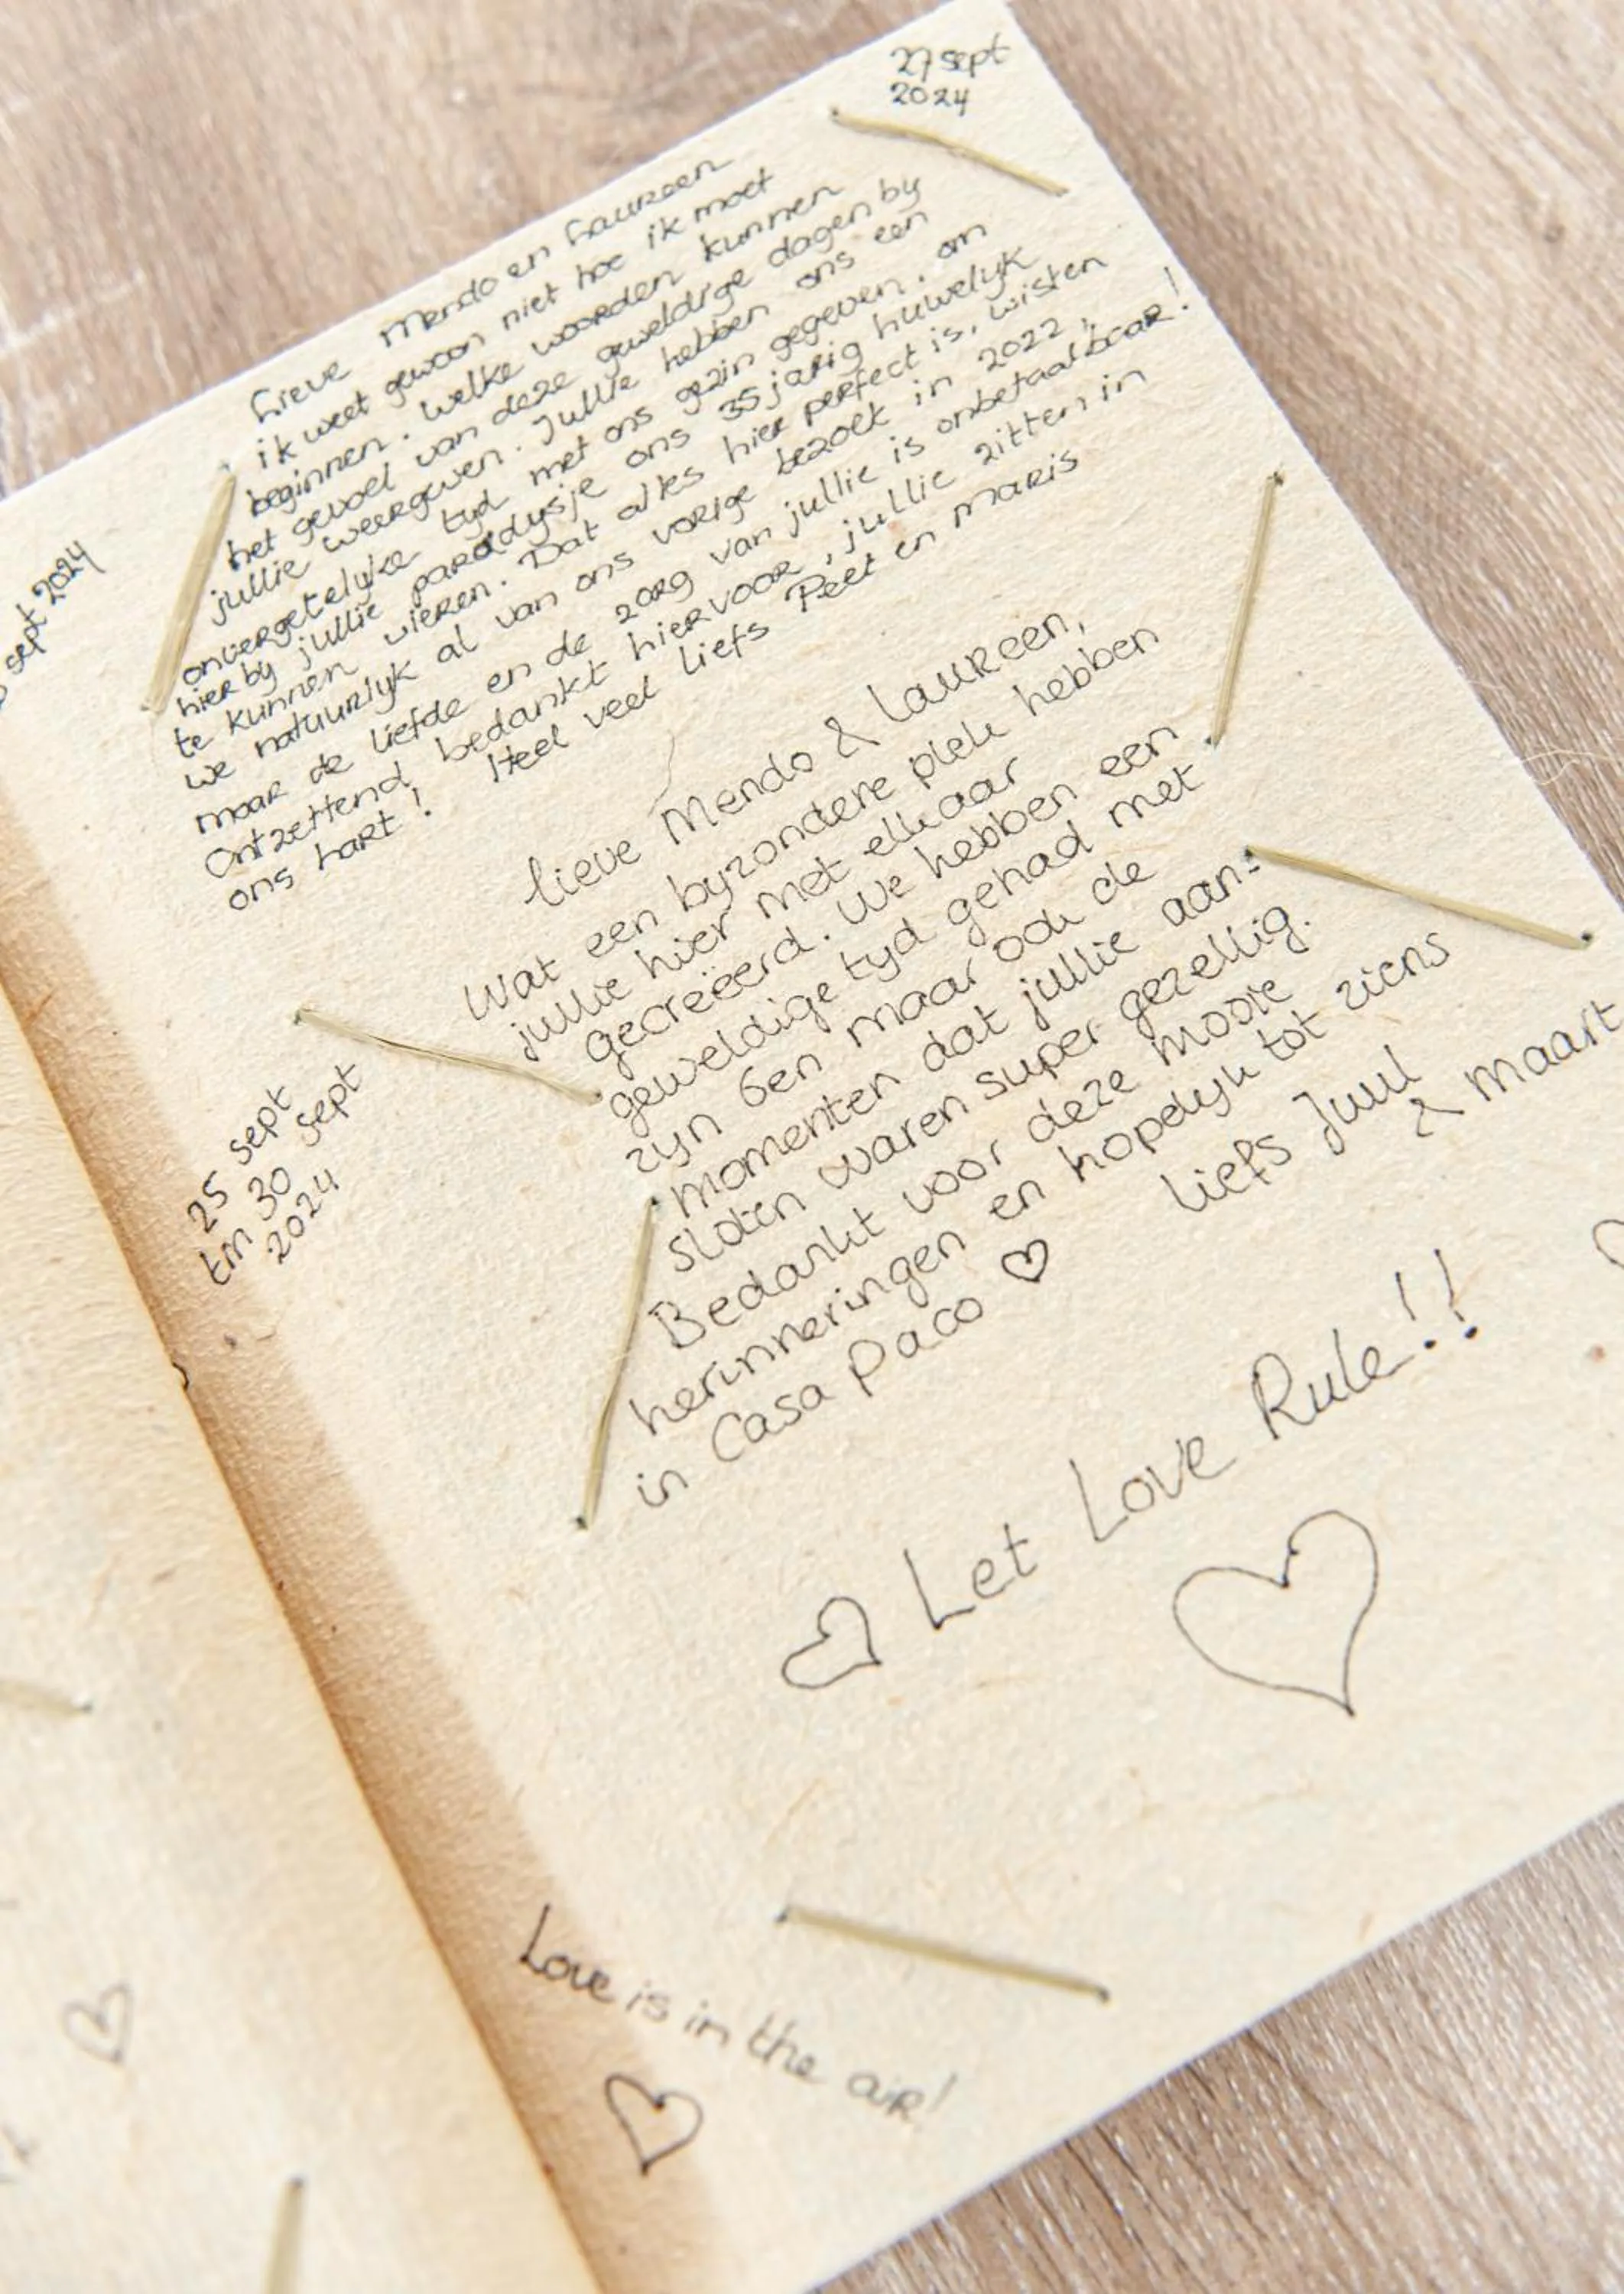 27 sept
2024
Lieve Mendo en Laureen
ik weet gewoon niet hoe ik moet
beginnen. Welke woorden kunnen
het gevoel van deze geweldige dagen bij
jullie weergeven. Jullie hebben ons een
onvergetelijke tijd met ons gezin gegeven. om
hier bij jullie paradijsje ons 35 jarig huwelijk
te kunnen vieren. Dat alles hier perfect is, wisten
we natuurlijk al van ons vorige bezoek in 2022,
maar de liefde en de zorg van jullie is onbetaalbaar!
Ontzettend bedankt hiervoor, jullie zitten in
ons hart!
Heel veel liefs Peet en Maris
sept 2024
Lieve Mendo & Laureen,
Wat een bijzondere plek hebben
jullie hier met elkaar
gecreëerd. We hebben een
geweldige tijd gehad met
zijn 6en maar ook de
momenten dat jullie aan-
sloten waren super gezellig.
Bedankt voor deze mooie
herinneringen en hopelijk tot ziens
in Casa Paco ♡
Liefs Juul
& Maart
25 sept
tm 30 sept
2024
♡ Let Love Rule!!
Love is in the air!